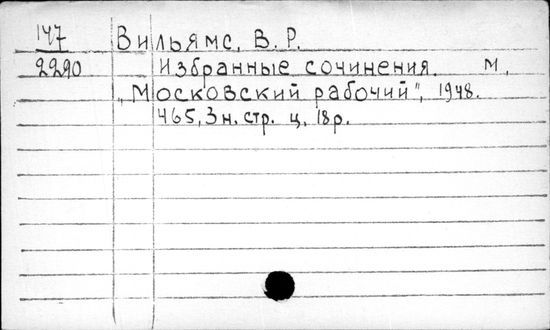 147 Вильямс, В. Р.
2290 Избранные сочинения. М.
„Московский рабочий", 1948.
465, 3 н. стр. ц. 18 р.